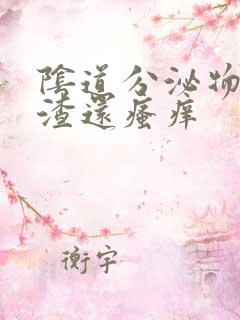 陰道分泌物
渣還瘙痒
衡宇